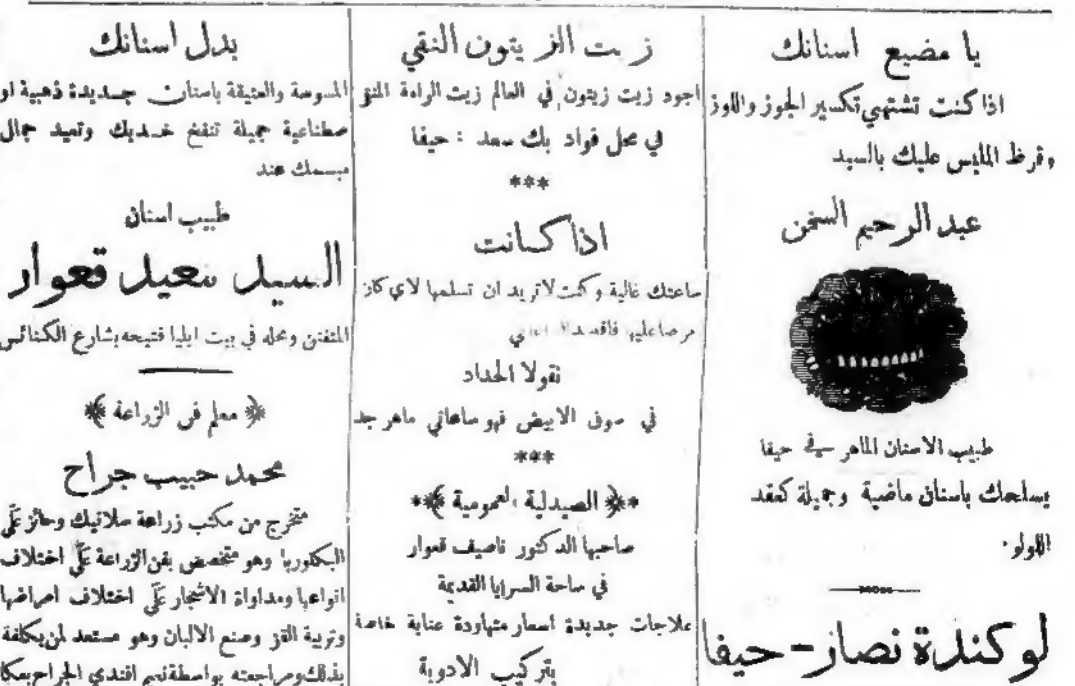 يا مضيع اسنانك
اذا كنت تشتهي تكسير الجوز واللوز
وقرظ الملبس عليك بالسيد
عبد الرحيم السخن
طبيب الاسنان الماهر في حيفا
يسلحك باسنان ماضية وجميلة كعقد
اللولو.
لوكندة نصار - حيفا
زيت الزيتون النقي
اجود زيت زيتون في العالم زيت الرامة المنقى
في محل فواد بك سعد : حيفا
***
اذا كانت
ساعتك غالية وكنت لا تريد ان تسلمها لاي كان
حرصا عليها فاقصد
نقولا الحداد
في سوق الابيض فهو ساعاتي ماهر جد
***
الصيدلية العمومية
صاحبها الدكتور ناصيف قعوار
في ساحة السرايا القديمة
علاجات جديدة اسعار متهاودة عناية خاصة
بتركيب الادوية
بدل اسنانك
المسوسة والعتيقة باسنان جديدة ذهبية او
صطناعية جميلة تنفخ خديك وتعيد جمال
مبسمك عند
طبيب اسنان
السيد سعيد قعوار
المتفنن ومحله في بيت ايليا فتيحه بشارع الكنائس
﴿ معلم فن الزراعة ﴾
محمد حبيب جراح
متخرج من مكتب زراعة سلانيك وحائز على
البكلوريا وهو متخصص بفن الزراعة على اختلاف
انواعها ومداواة الاشجار على اختلاف امراضها
وتربية القز وصنع الالبان وهو مستعد لمن يكلفة
بذلك ومراجعته بواسطة نسم افندي الجراح بعكا